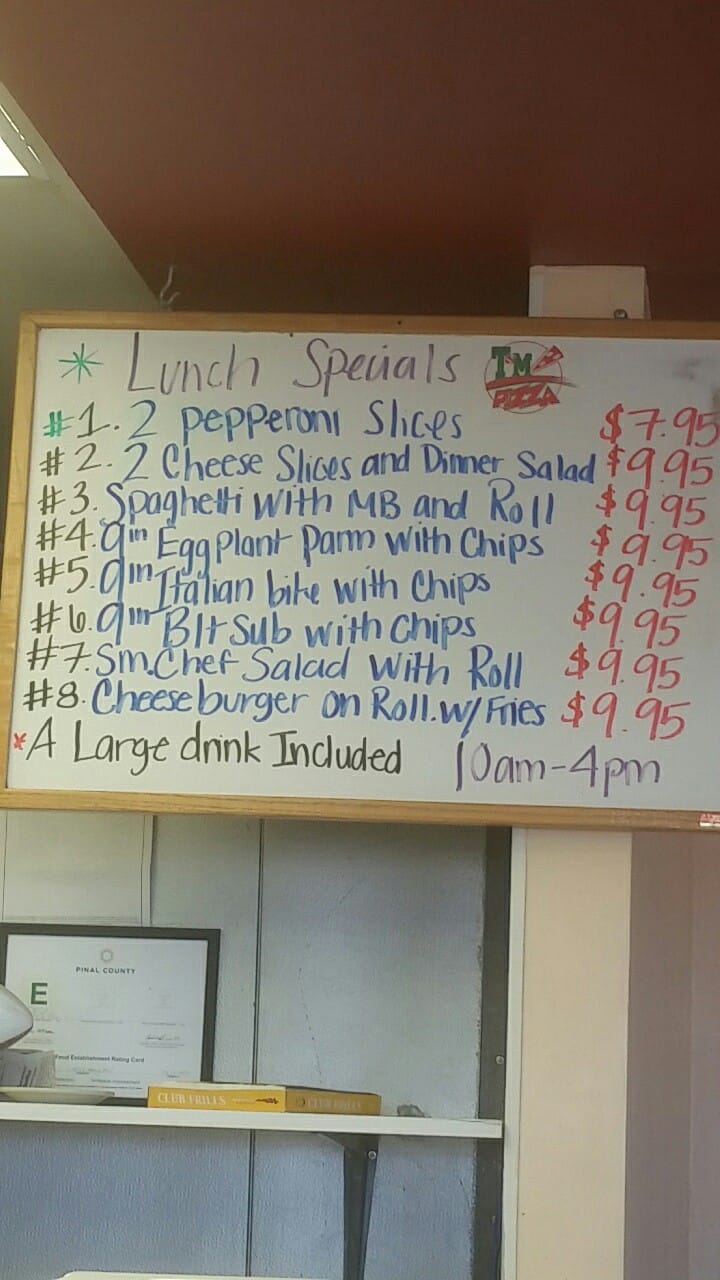 * Lunch Specials TM PIZZA
#1. 2 Pepperoni Slices $7.95
#2. 2 Cheese Slices and Dinner Salad $9.95
#3. Spaghetti With MB and Roll $9.95
#4. 9in Egg Plant Parm With Chips $9.95
#5. 9in Italian bike with Chips $9.95
#6. 9in Blt Sub with Chips $9.95
#7. Sm. Chef Salad With Roll $9.95
#8. Cheese burger on Roll. w/ Fries $9.95
* A Large drink Included 10am-4pm
PINAL COUNTY
E
Food Establishment Rating Card
CLUB FRILLS CLUB FRILLS